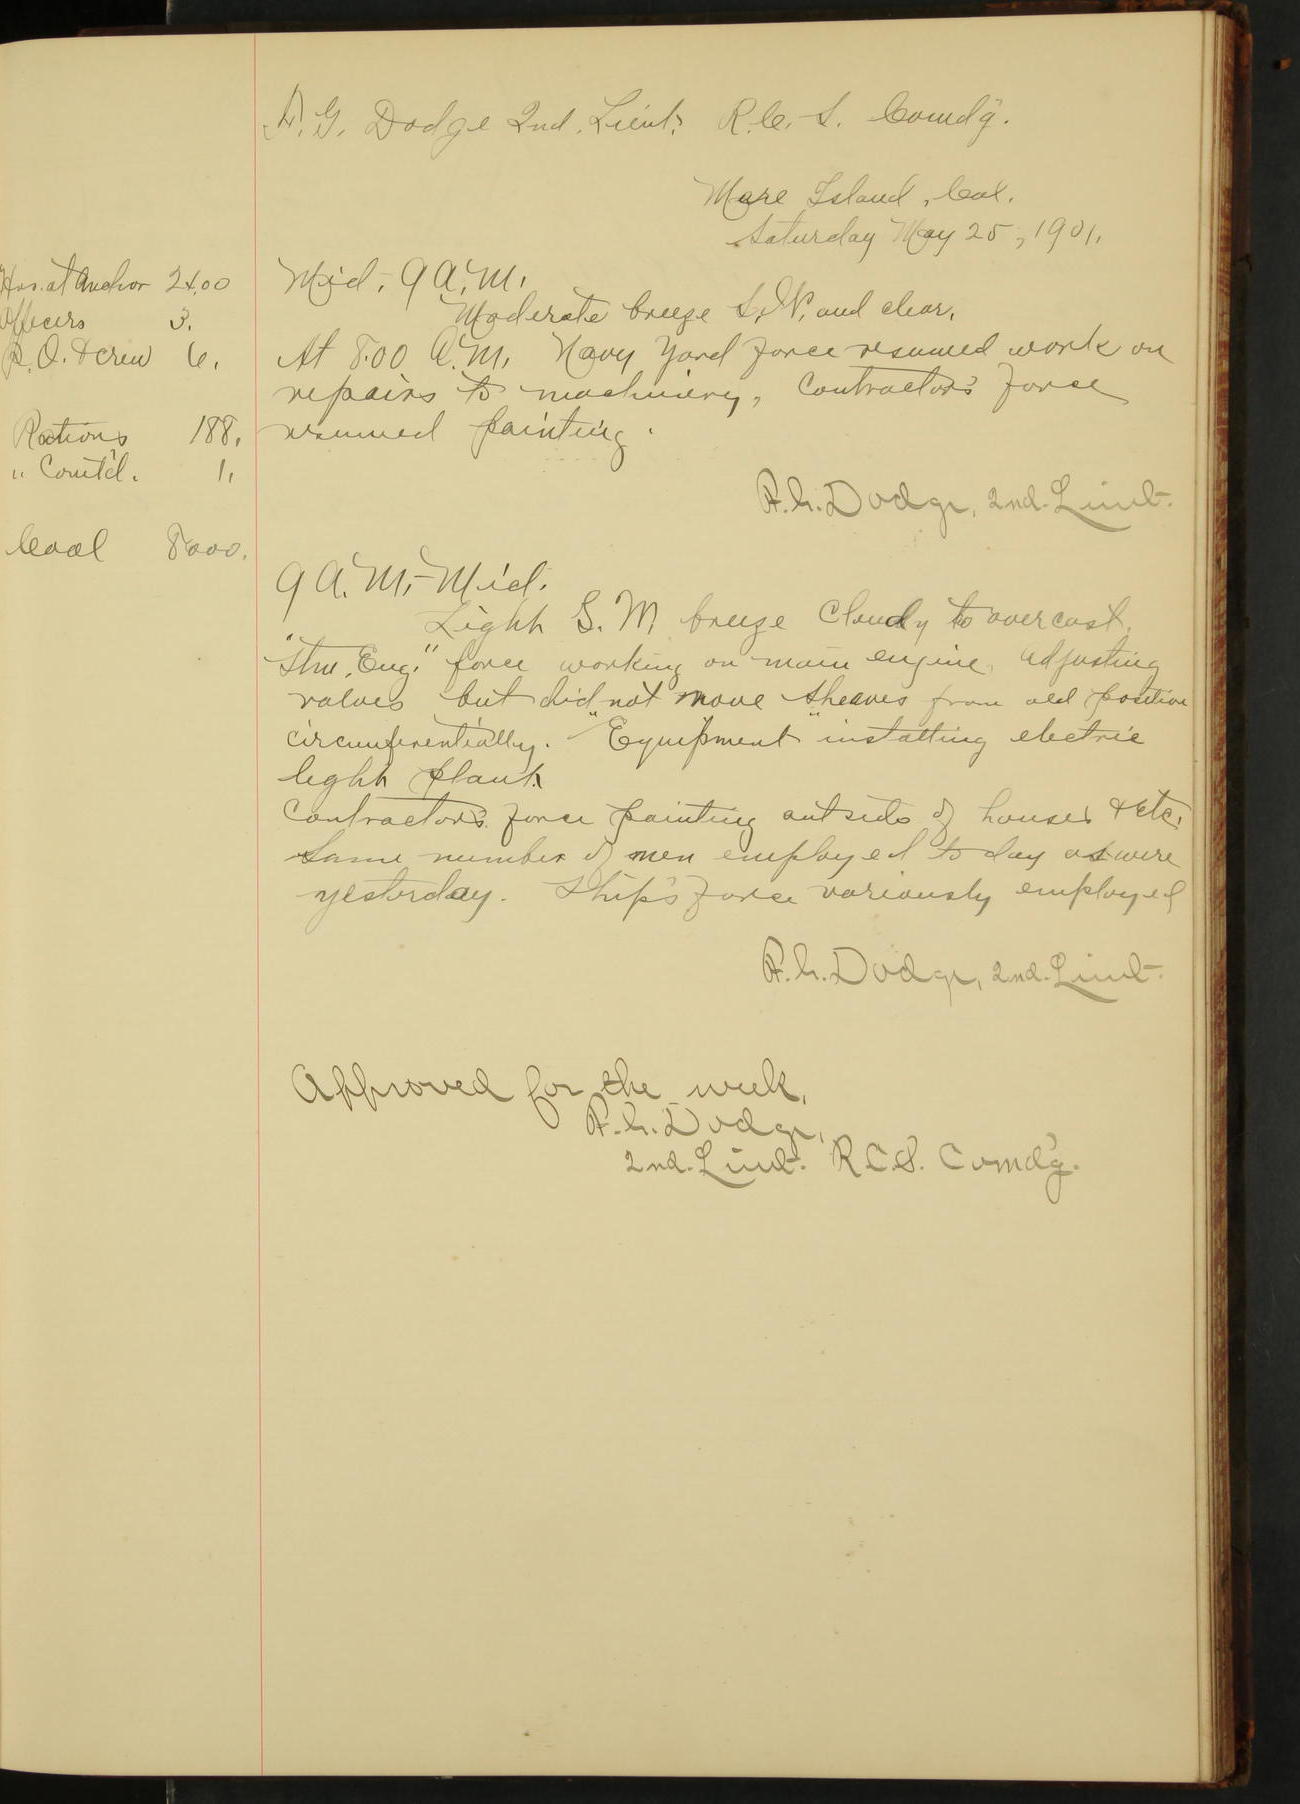 F. G. Dodge 2nd. Lieut. R. C. S. Comd'g.
Mare Island, Cal.
Saturday May 25, 1901.
Hrs. at Anchor 24.00
Officers 3.
P. O. & crew 6.
Rations 188.
" Comt'd. 1.
Coal 8000.
Mid. 9 A.M.
Moderate breeze S.W. and clear.
At 8.00 A.M. Navy Yard force resumed work on
repairs to machinery, Contractor's force
resumed painting.
F. G. Dodge, 2nd. Lieut.
9 A.M.-Mid.
Light S.W. breeze Cloudy to overcast.
"Stm. Eng." force working on main engine, adjusting
valves but did not move sheaves from old position
circumferentially. "Equipment" installing electric
light plant.
Contractor's force painting outside of houses & etc.
Same number of men employed to day as were
yesterday. Ship's force variously employed
F. G. Dodge, 2nd. Lieut.
Approved for the week,
F. G. Dodge,
2nd. Lieut. R.C.S. Comd'g.